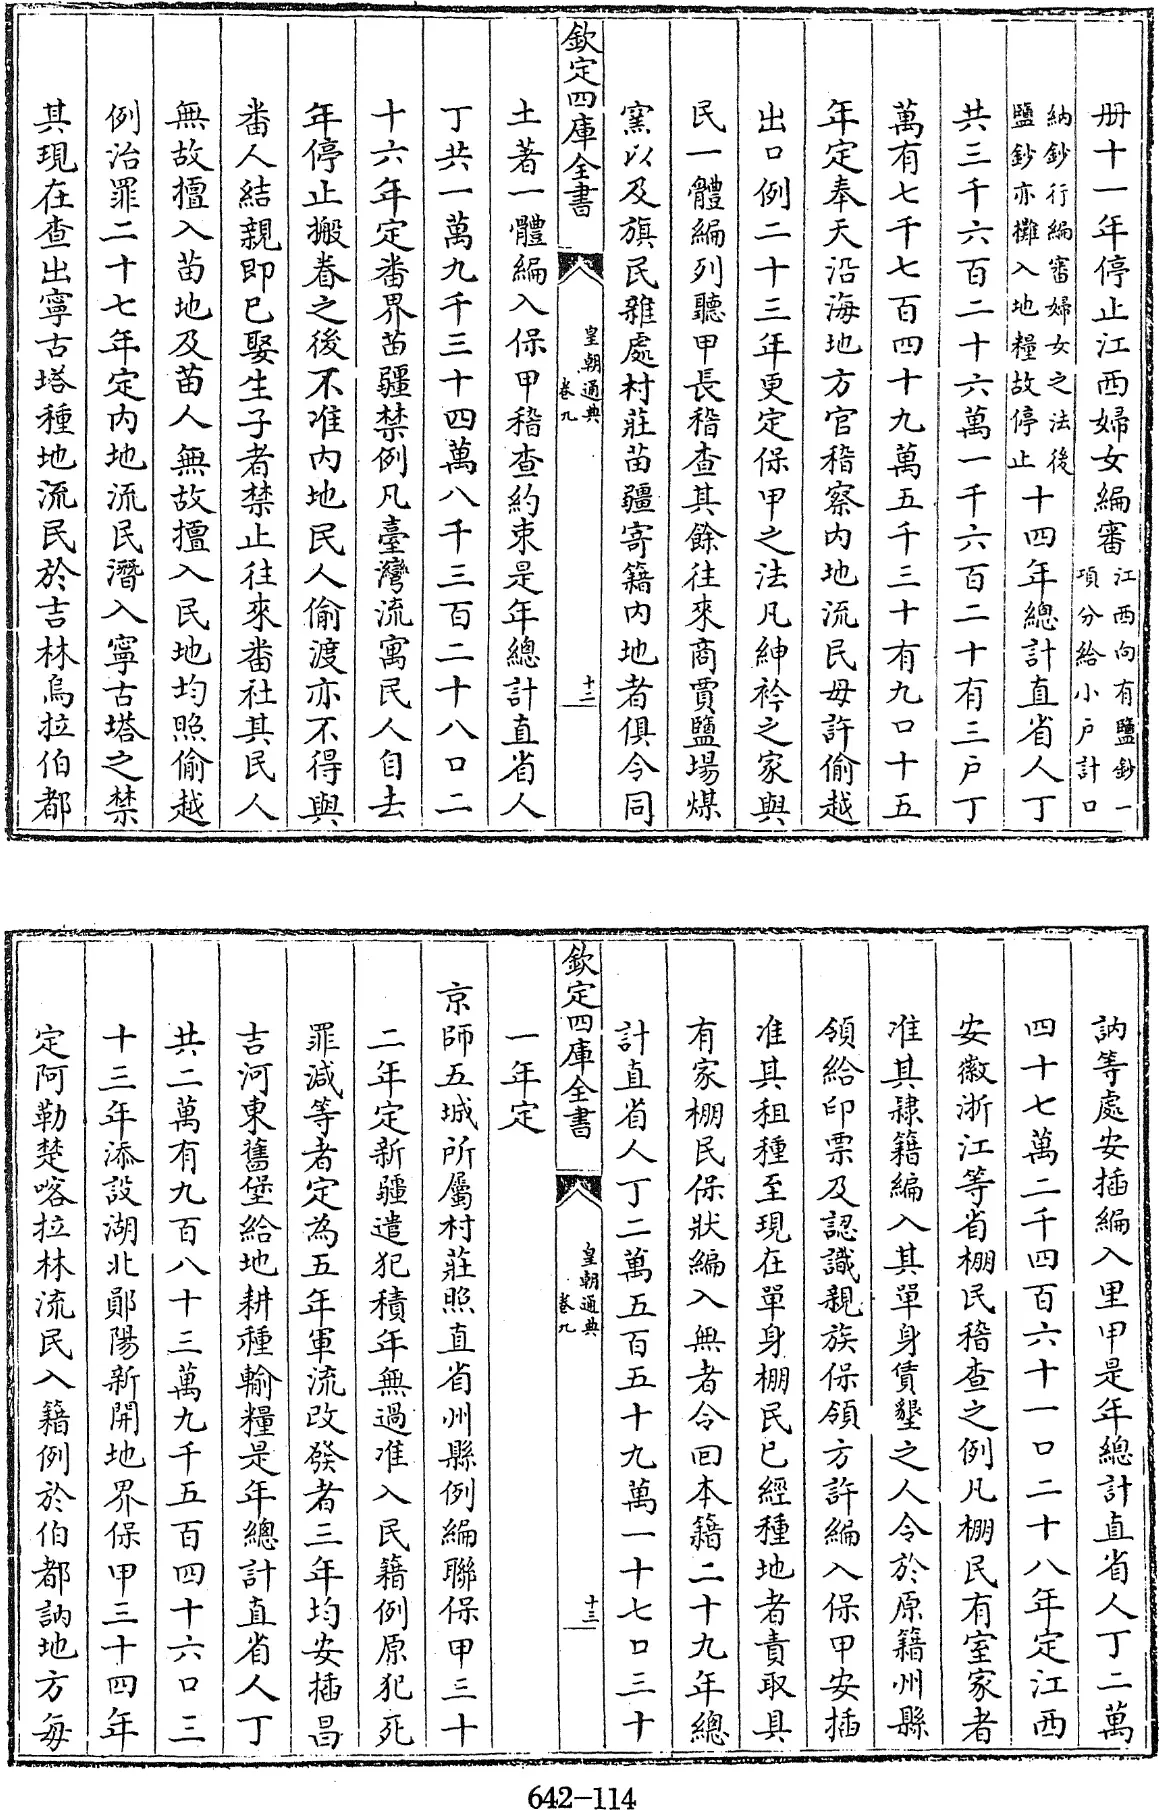 冊十一年停止江西婦女編審江西向有鹽鈔一項分給小戶計口
納鈔行編審婦女之法後鹽鈔亦攤入地糧故停止十四年總計直省人丁
共三千六百二十六萬一千六百二十有三戶丁
萬有七千七百四十九萬五千三十有九口十五
年定奉天沿海地方官稽察內地流民毋許偷越
出口例二十三年更定保甲之法凡紳衿之家與
民一體編列聽甲長稽查其餘往來商賈鹽場煤
窯以及旗民雜處村莊苗疆寄籍內地者俱令同
欽定四庫全書
皇朝通典
卷九
十二
土著一體編入保甲稽查約束是年總計直省人
丁共一萬九千三十四萬八千三百二十八口二
十六年定番界苗疆禁例凡臺灣流寓民人自去
年停止搬眷之後不准內地民人偷渡亦不得與
番人結親即已娶生子者禁止往來番社其民人
無故擅入苗地及苗人無故擅入民地均照偷越
例治罪二十七年定內地流民潛入寧古塔之禁
其現在查出寧古塔種地流民於吉林烏拉伯都
訥等處安插編入里甲是年總計直省人丁二萬
四十七萬二千四百六十一口二十八年定江西
安徽浙江等省棚民稽查之例凡棚民有室家者
准其隸籍編入其單身賃墾之人令於原籍州縣
領給印票及認識親族保領方許編入保甲安插
准其租種至現在單身棚民已經種地者責取具
有家棚民保狀編入無者令回本籍二十九年總
計直省人丁二萬五百五十九萬一十七口三十
欽定四庫全書
皇朝通典
卷九
十三
一年定
京師五城所屬村莊照直省州縣例編聯保甲三十
二年定新疆遣犯積年無過准入民籍例原犯死
罪減等者定為五年軍流改發者三年均安插昌
吉河東舊堡給地耕種輸糧是年總計直省人丁
共二萬有九百八十三萬九千五百四十六口三
十三年添設湖北鄖陽新開地界保甲三十四年
定阿勒楚喀拉林流民入籍例於伯都訥地方每
642-114